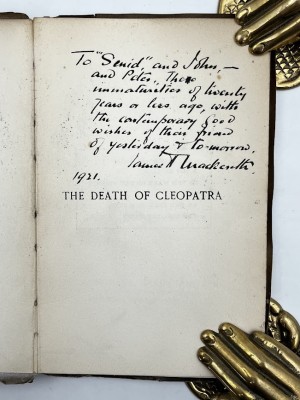 To "Senid", and John, —
and Peter, These
immaturities of twenty
years or less ago, with
the contemporary good
wishes of their friend
of yesterday & to-morrow.
James A Mackereth.
1921.
THE DEATH OF CLEOPATRA